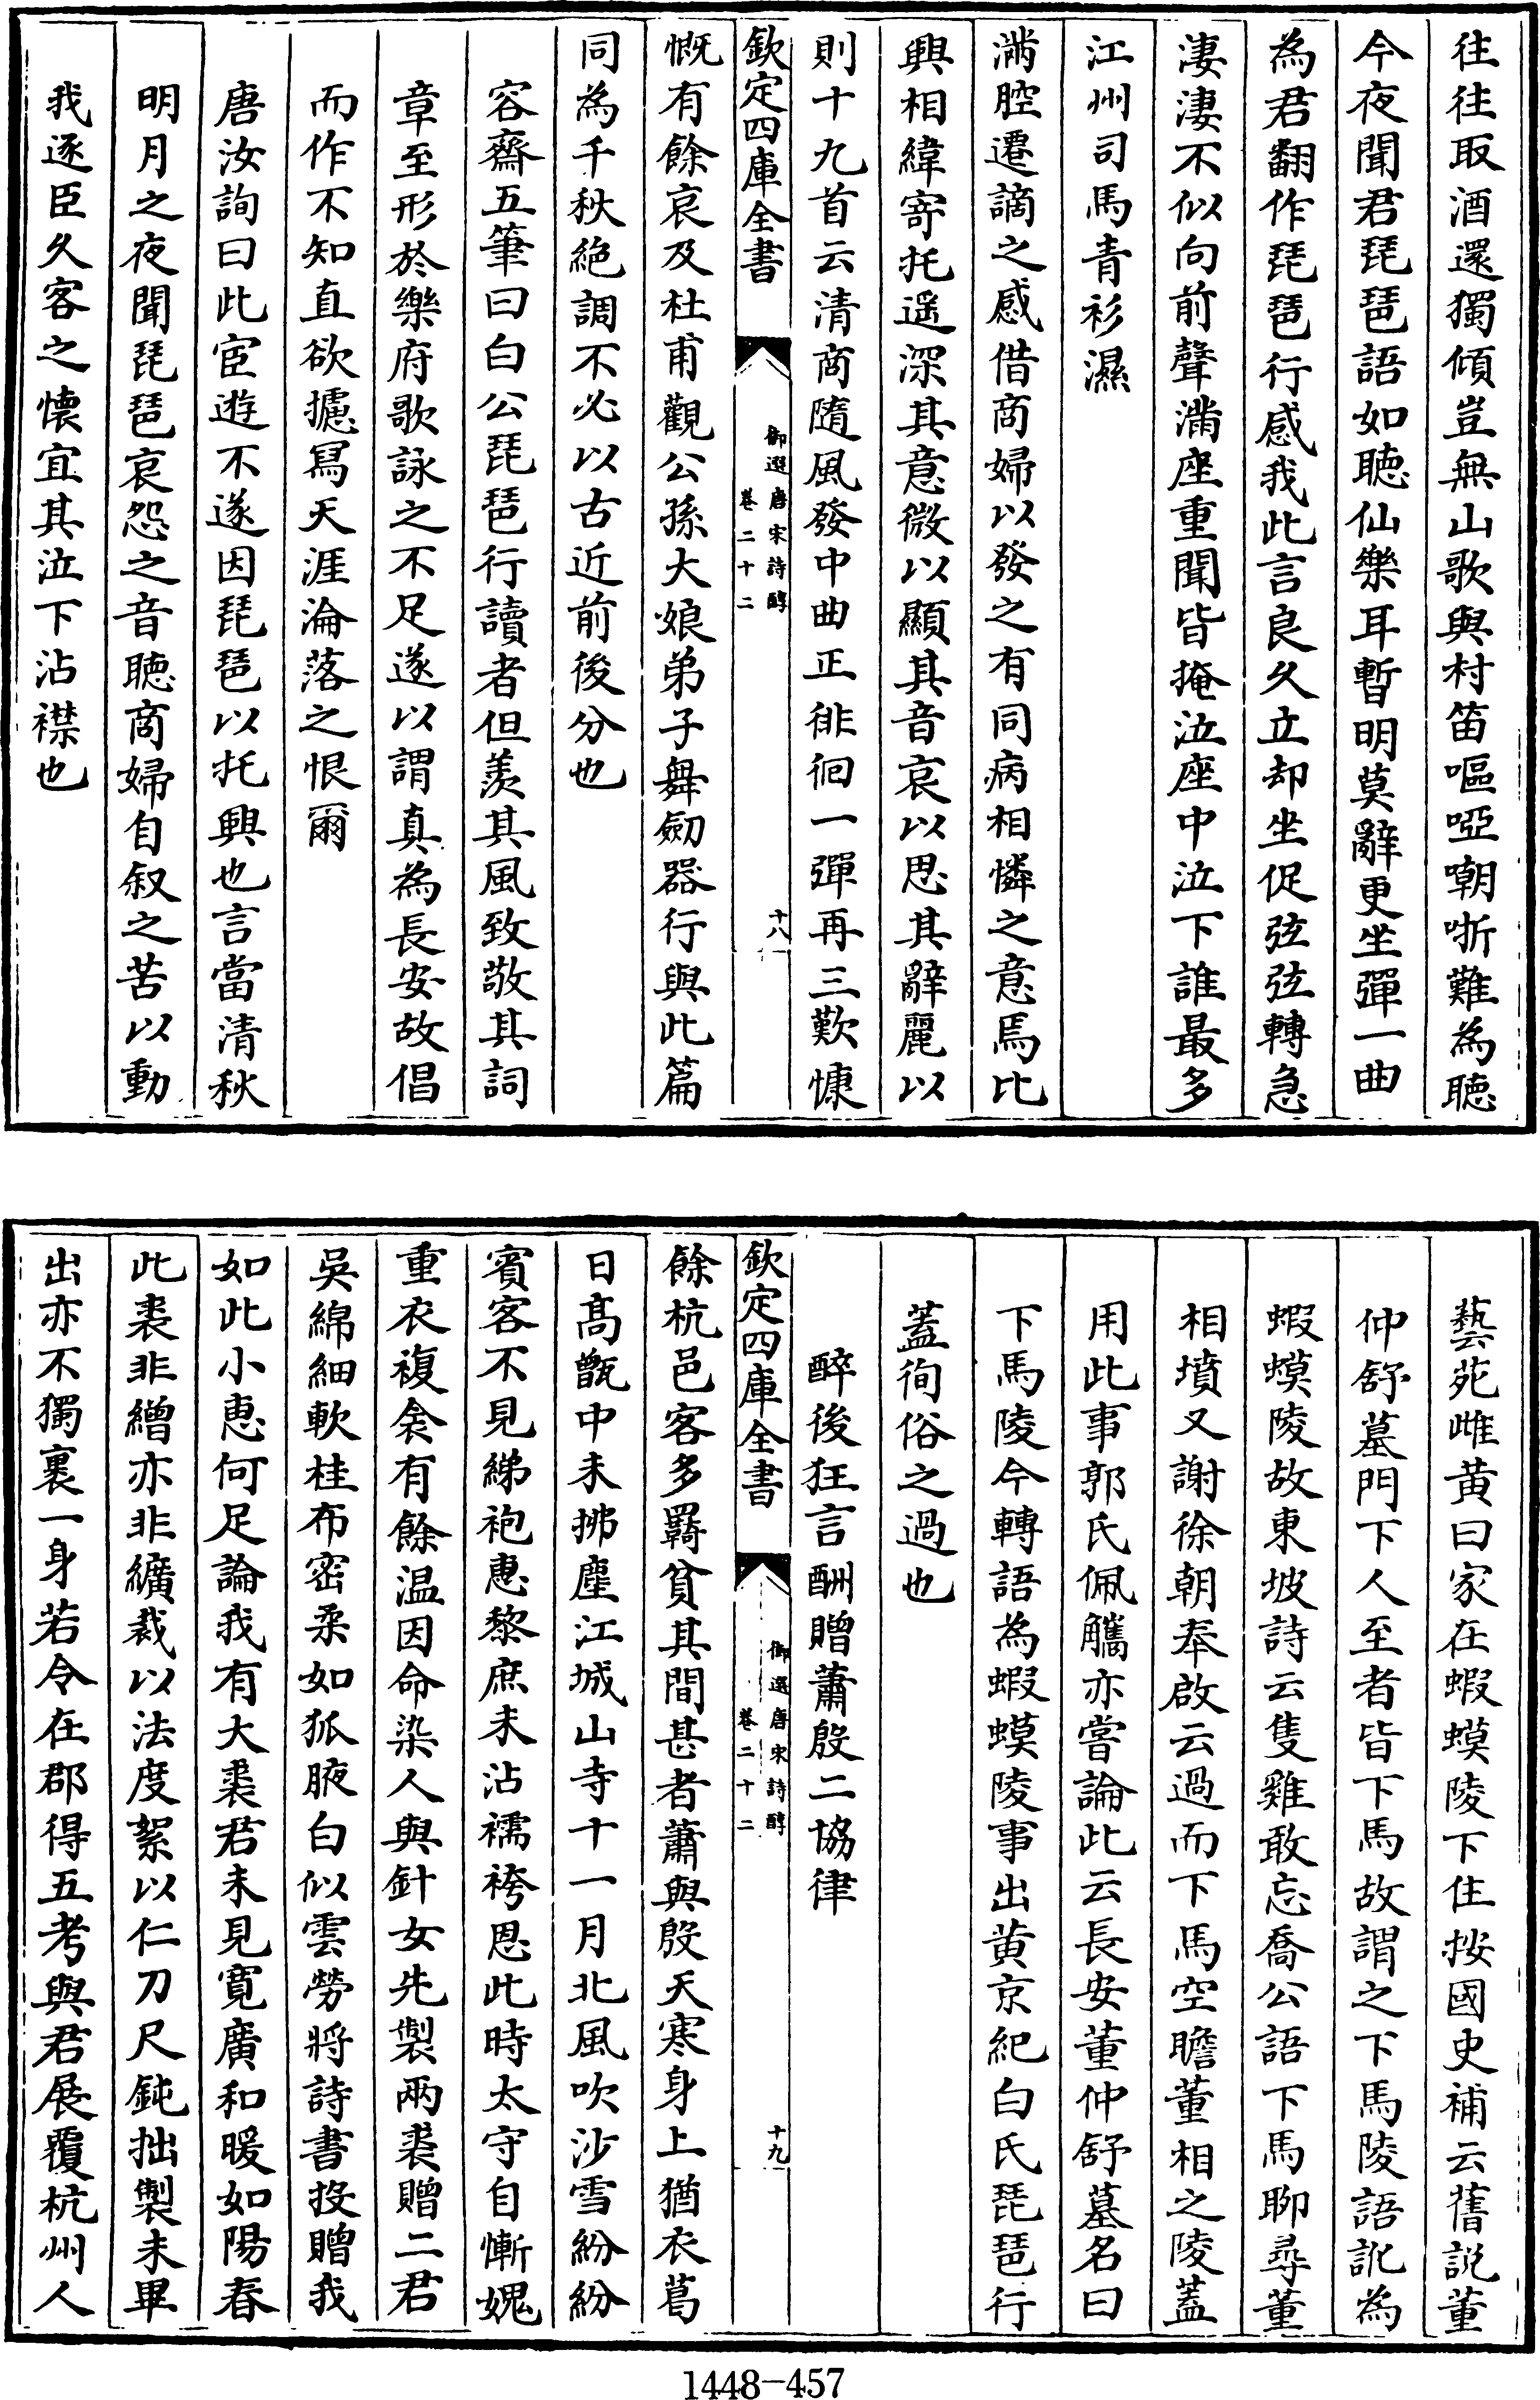 往往取酒還獨傾豈無山歌與村笛嘔啞嘲哳難為聴
今夜聞君琵琶語如聴仙樂耳暫明莫辭更坐彈一曲
為君翻作琵琶行感我此言良久立却坐促弦弦轉急
淒淒不似向前聲滿座重聞皆掩泣座中泣下誰最多
江州司馬青衫濕
滿腔遷謫之感借商婦以發之有同病相憐之意焉比
興相緯寄托遥深其意微以顯其音哀以思其辭麗以
則十九首云清商隨風發中曲正徘徊一彈再三歎慷
欽定四庫全書
御選唐宋詩醇
卷二十二
十八
慨有餘哀及杜甫觀公孫大娘弟子舞劒器行與此篇
同為千秋絶調不必以古近前後分也
容齋五筆曰白公琵琶行讀者但羨其風致敬其詞
章至形於樂府歌詠之不足遂以謂真為長安故倡
而作不知直欲攄冩天涯淪落之恨爾
唐汝詢曰此宦遊不遂因琵琶以托興也言當清秋
明月之夜聞琵琶哀怨之音聴商婦自叙之苦以動
我逐臣久客之懐宜其泣下沾襟也
藝苑雌黄曰家在蝦蟆陵下住按國史補云舊説董
仲舒墓門下人至者皆下馬故謂之下馬陵語訛為
蝦蟆陵故東坡詩云隻雞敢忘喬公語下馬聊尋董
相墳又謝徐朝奉啟云過而下馬空瞻董相之陵蓋
用此事郭氏佩觿亦嘗論此云長安董仲舒墓名曰
下馬陵今轉語為蝦蟆陵事出黄京紀白氏琵琶行
蓋徇俗之過也
醉後狂言酬贈蕭殷二協律
欽定四庫全書
御選唐宋詩醇
卷二十二
十九
餘杭邑客多羇貧其間甚者蕭與殷天寒身上猶衣葛
日髙甑中未拂塵江城山寺十一月北風吹沙雪紛紛
賓客不見綈袍惠黎庶未沾襦袴恩此時太守自慚媿
重衣複衾有餘温因命染人與針女先製兩裘贈二君
吳綿細軟桂布密柔如狐腋白似雲勞將詩書投贈我
如此小惠何足論我有大裘君未見寛廣和暖如陽春
此裘非繒亦非纊裁以法度絮以仁刀尺鈍拙製未畢
出亦不獨裹一身若令在郡得五考與君展覆杭州人
1448-457